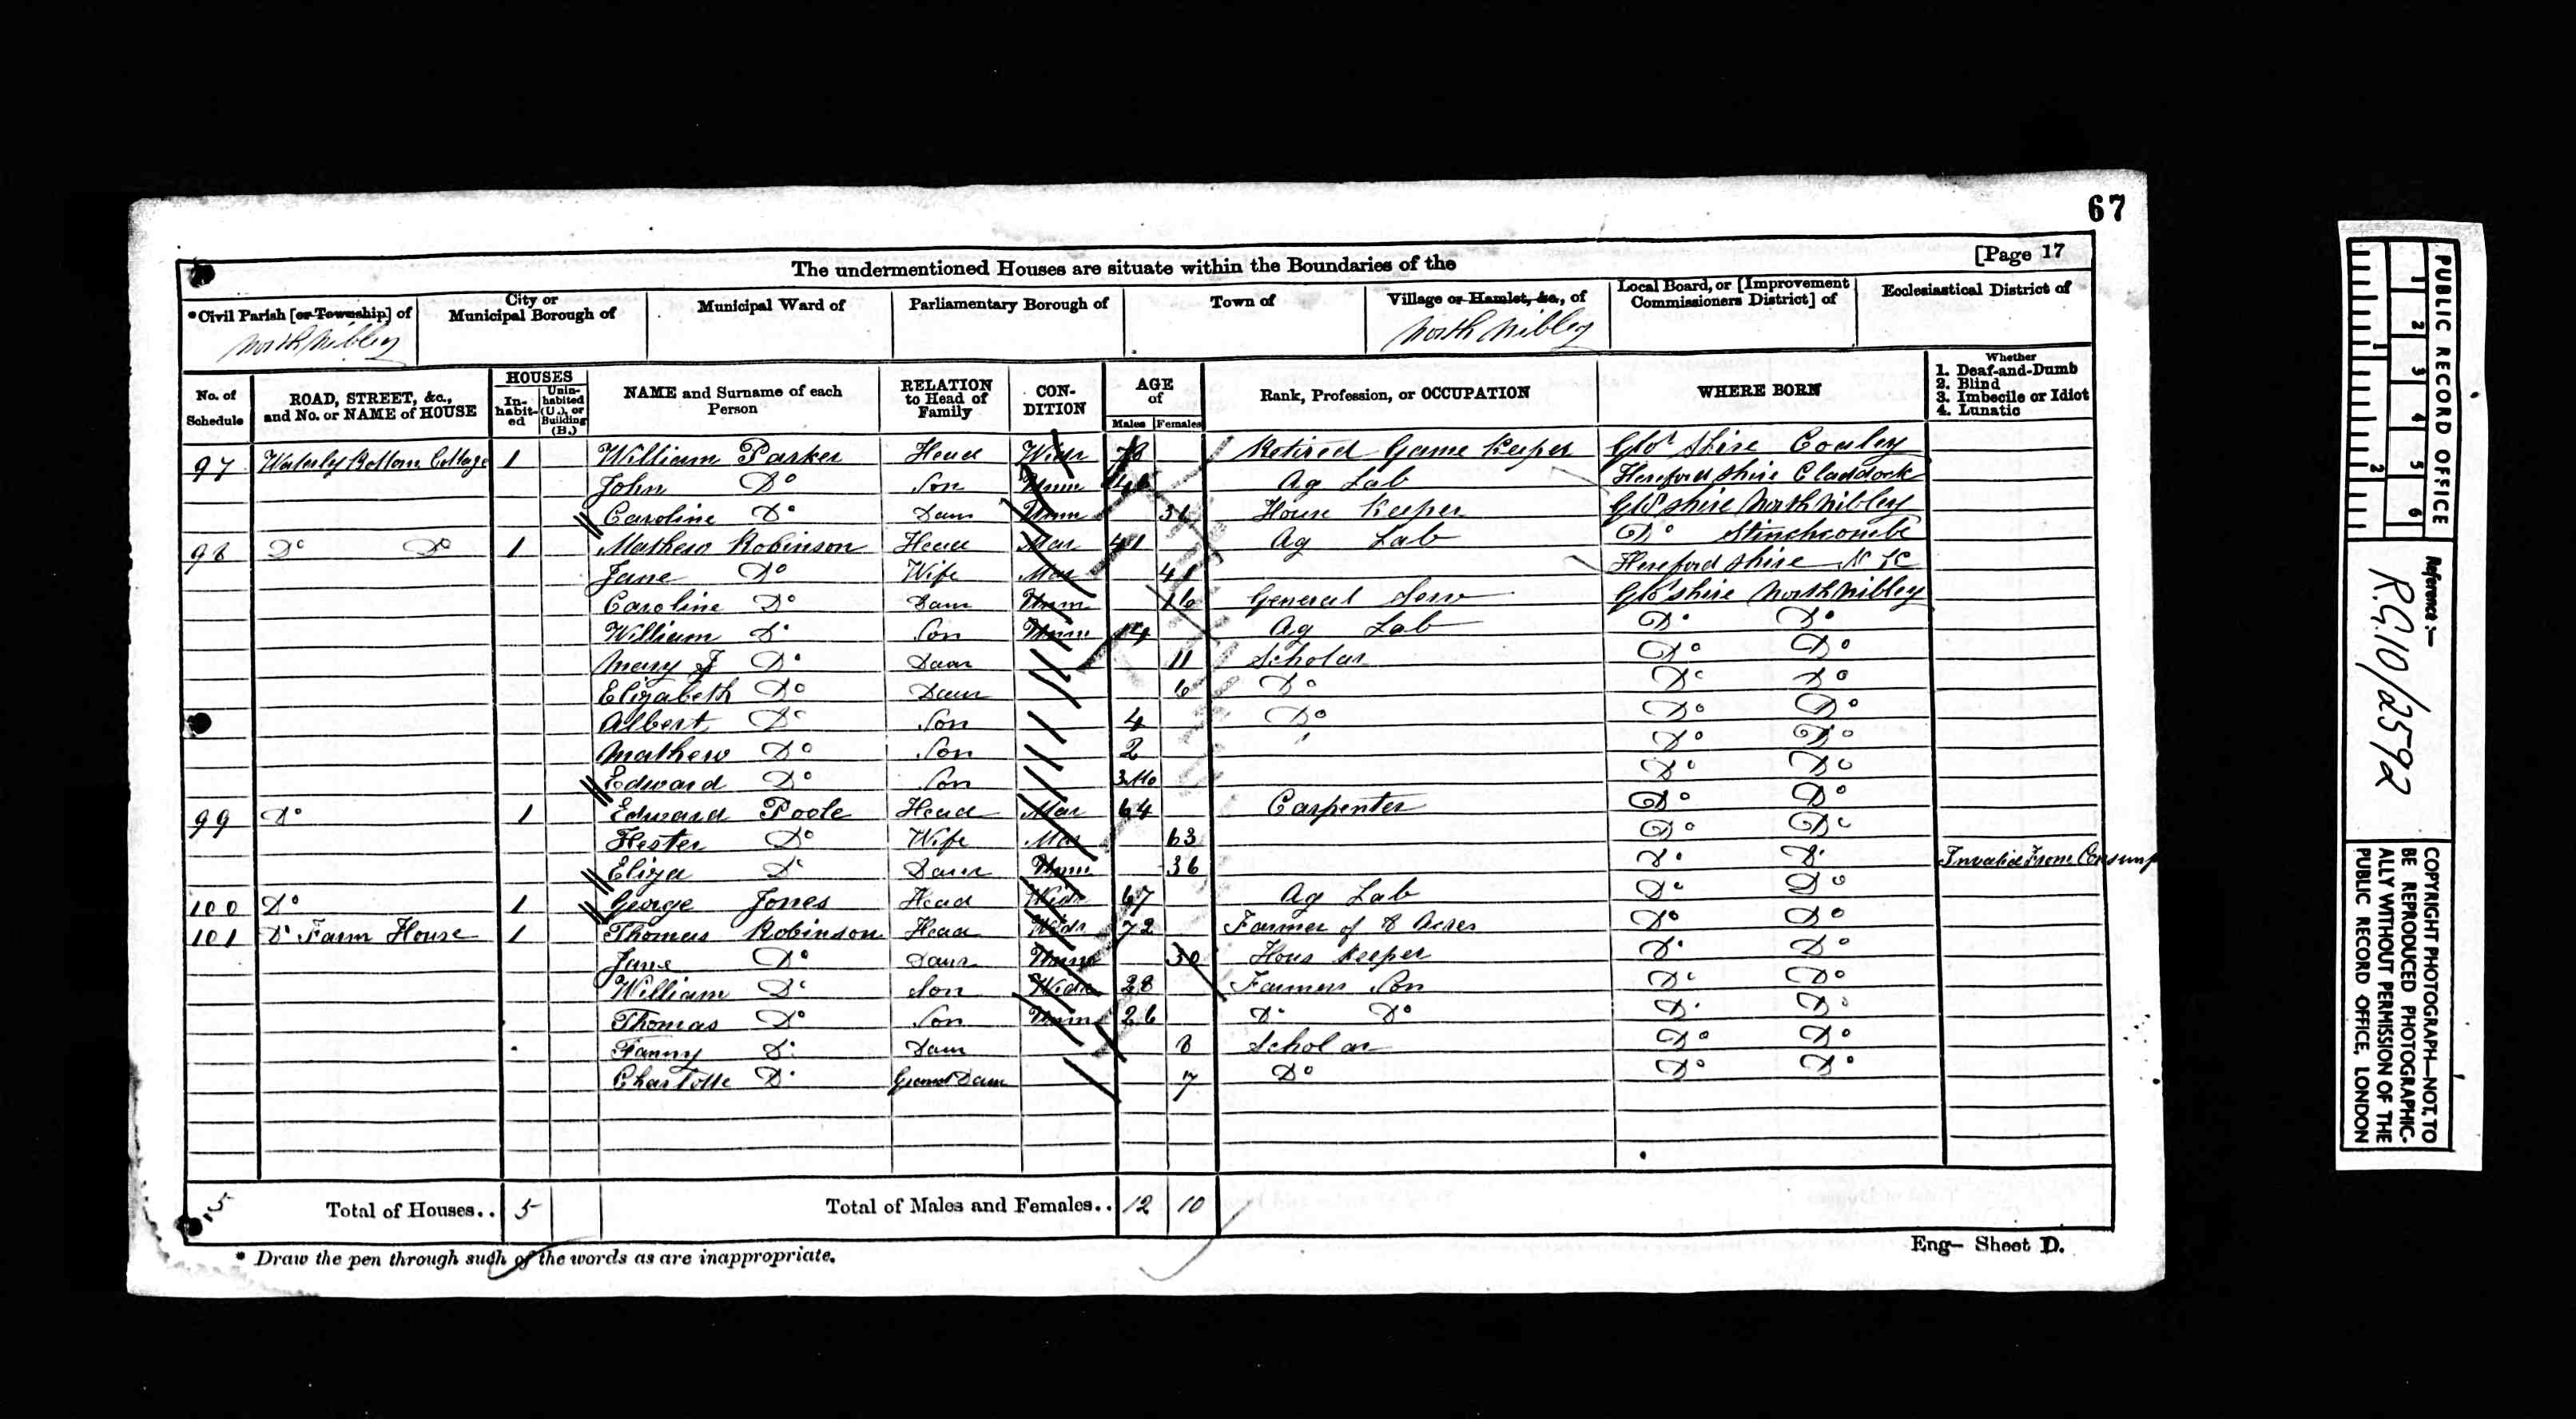 67
[Page 17
The undermentioned Houses are situate within the Boundaries of the
*Civil Parish [or Township] of
City or Municipal Borough of
Municipal Ward of
Parliamentary Borough of
Town of
Village or Hamlet, &c., of
Local Board, or [Improvement Commissioners District] of
Ecclesiastical District of
North Nibley
North Nibley
No. of Schedule
ROAD, STREET, &c., and No. or NAME of HOUSE
HOUSES
In-habit-ed
Unin-habited (U.), or Building (B.)
NAME and Surname of each Person
RELATION to Head of Family
CON-DITION
AGE of
Males
Females
Rank, Profession, or OCCUPATION
WHERE BORN
Whether
1. Deaf-and-Dumb
2. Blind
3. Imbecile or Idiot
4. Lunatic
97 Waterley Bottom Cottage 1 William Parker Head Widr 78 Retired Game Keeper Glos Shire Coaley
John Do Son Unm Ag Lab Herefordshire
Caroline Do Daur Unm House Keeper Glos shire North Nibley
98 Do Do 1 Mathew Robinson Head Mar 41 Ag Lab Do Stinchcombe
Jane Do Wife Mar 41 Herefordshire N K
Caroline Do Daur Unm 16 General Serv Glos shire North Nibley
William Do Son Unm 14 Ag Lab Do Do
Mary J Do Daur 11 Scholar Do Do
Elizabeth Do Daur 6 Do Do Do
Albert Do Son 4 Do Do Do
Mathew Do Son 2 Do Do
Edward Do Son 3 Mo Do Do
99 Do 1 Edward Poole Head Mar 64 Carpenter Do Do
Hester Do Wife Mar 63 Do Do
Eliza Do Daur Unm 36 Do Do Invalid From Consump
100 Do 1 George Jones Head Widr 67 Ag Lab Do Do
101 Do Farm House 1 Thomas Robinson Head Widr 72 Farmer of 8 Acres Do Do
Jane Do Daur Unm 30 Hous Keeper Do Do
William Do Son Widr 28 Farmers Son Do Do
Thomas Do Son Unm 26 Do Do Do Do
Fanny Do Daur 8 Scholar Do Do
Charlotte Do Grand Daur 7 Do Do Do
5
Total of Houses.. 5
Total of Males and Females.. 12 10
* Draw the pen through such of the words as are inappropriate.
Eng— Sheet D.
PUBLIC RECORD OFFICE
1 2 3 4 5 6
1 2
Reference:—
R.G.10/2592
COPYRIGHT PHOTOGRAPH—NOT TO
BE REPRODUCED PHOTOGRAPHIC-
ALLY WITHOUT PERMISSION OF THE
PUBLIC RECORD OFFICE, LONDON